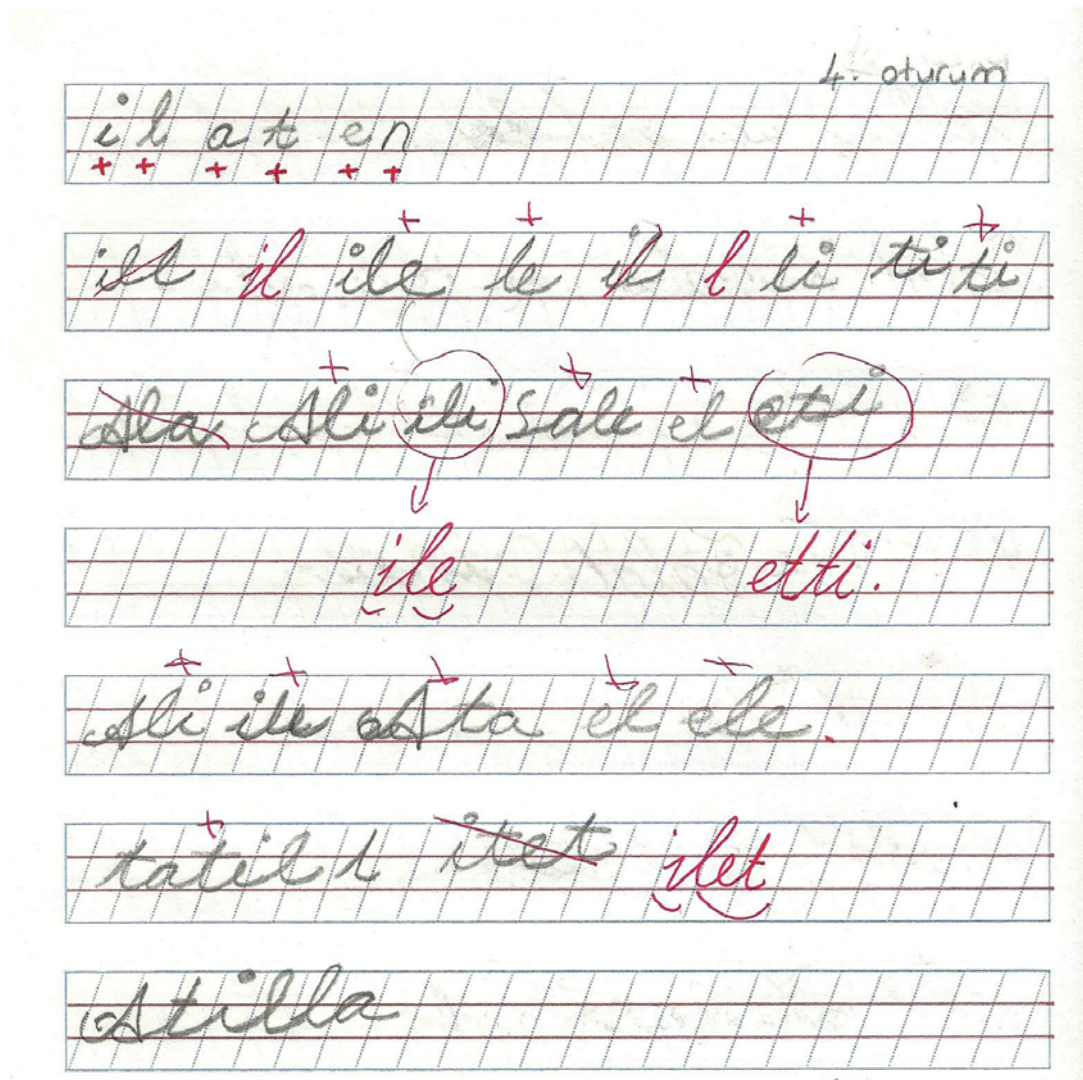 4. oturum
i l a t e n
+ + + + + +
+ + + +
il ile le il l li ti ti
+ + +
Ala Ali ili Sak el eti
ile etti.
+ + + + +
Ali ile Ata el ele.
+
tatil l itet ilet
Atilla